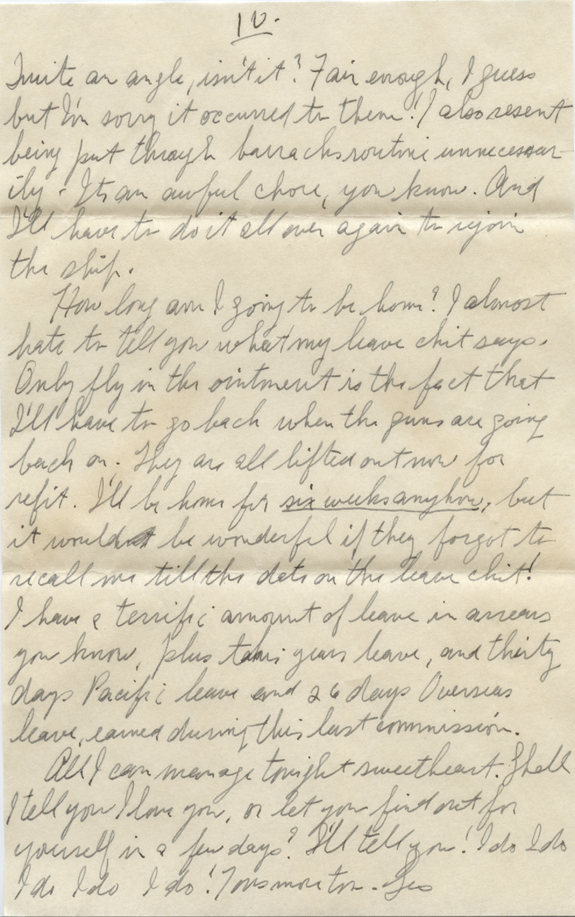 10.
Quite an angle, isn't it? Fair enough, I guess
but I'm sorry it occurred to them! I also resent
being put through barracks routine unnecessar-
ily - Its an awful chore, you know. And
I'll have to do it all over again to rejoin
the ship.
How long am I going to be home? I almost
hate to tell you what my leave chit says.
Only fly in the ointment is the fact that
I'll have to go back when the guns are going
back on. They are all lifted out now for
refit. I'll be home for six weeks anyhow, but
it would be wonderful if they forgot to
recall me till the date on the leave chit!
I have a terrific amount of leave in arrears
you know, plus this years leave, and thirty
days Pacific leave and 26 days Overseas
leave, earned during this last commission.
All I can manage tonight sweetheart. Shall
I tell you I love you, or let you find out for
yourself in a few days? I'll tell you! I do I do
I do I do I do! Tons more tom.